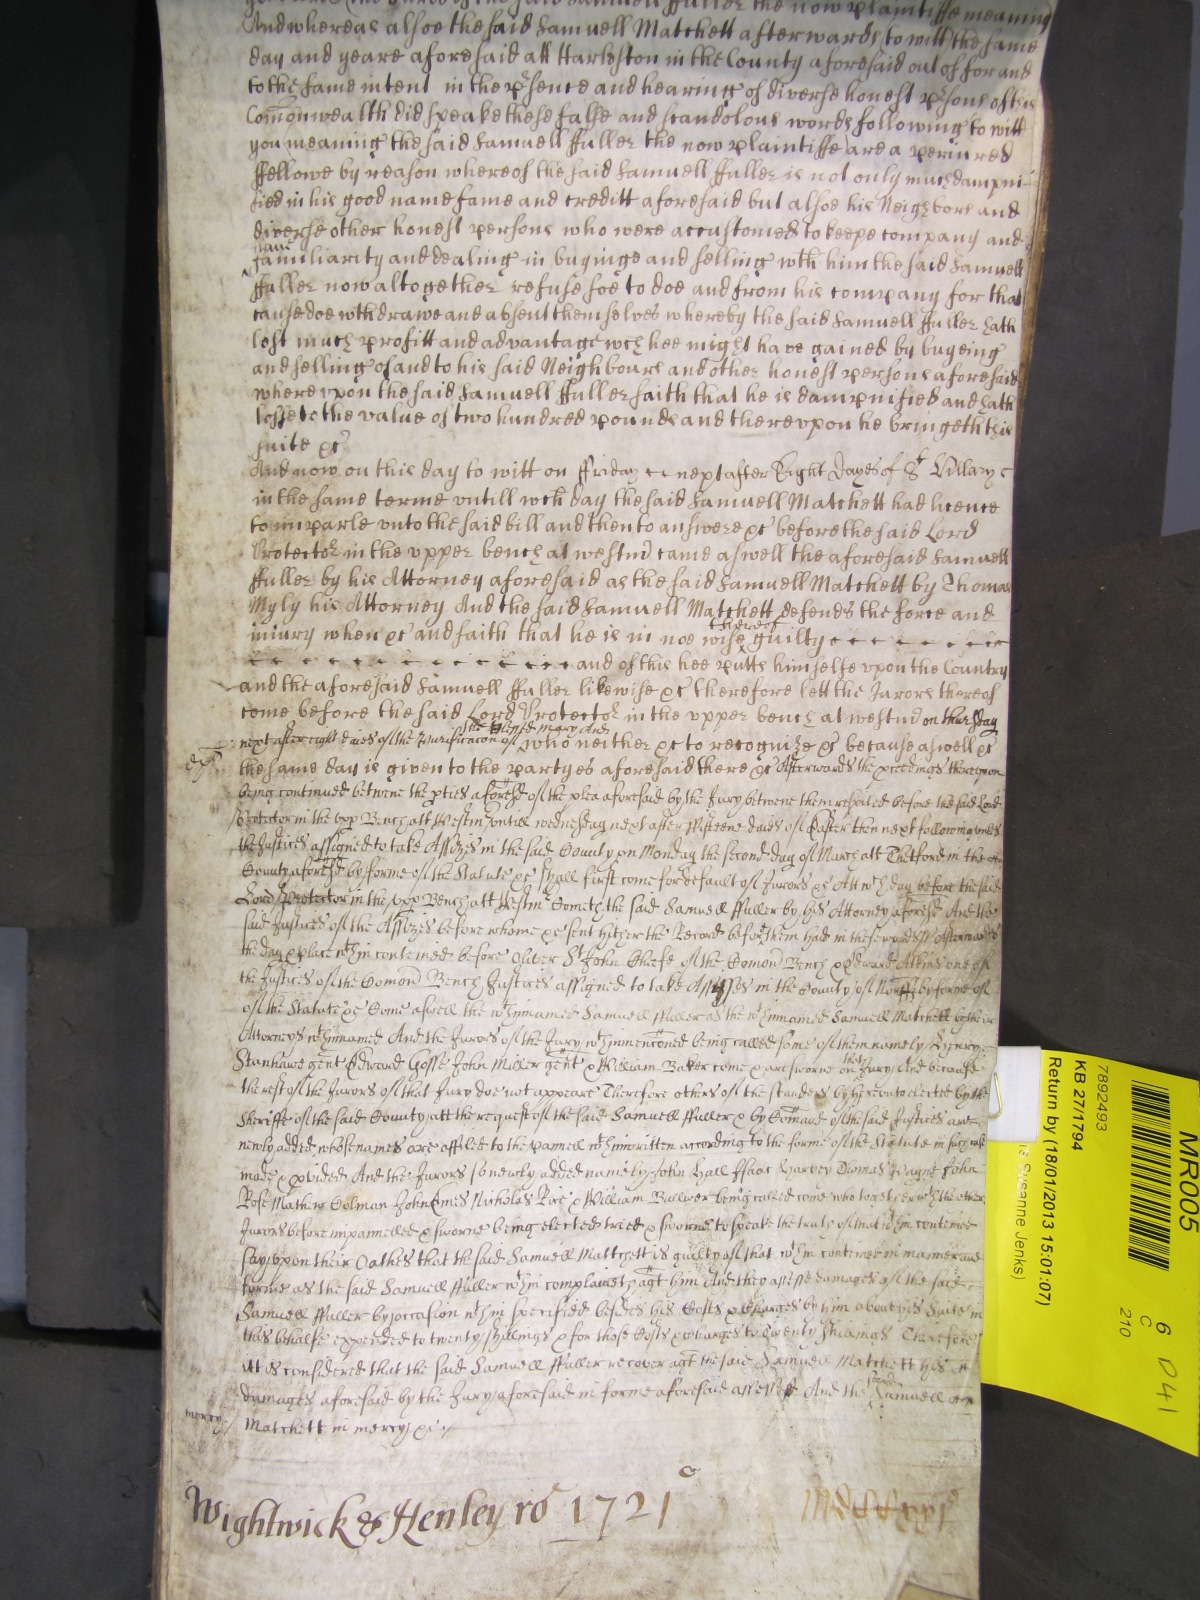 the said Samuell ffuller the now plaintiffe meaning
And whereas alsoe the said Samuell Matchett afterwards (to witt) the same
day and yeare aforesaid att Harleston in the County aforesaid out of for and
to the same intent in the p'sence and hearing of diverse honest p'sons of this
Comonwealth did speake these false and scandolous words following to witt
you meaning the said Samuell ffuller the now plaintiffe are a periured
ffellowe by reason whereof the said Samuell ffuller is not only much dampni-
fied in his good name fame and creditt aforesaid but alsoe his Neighbors and
diverse other honest persons who were accustomed to keepe company and
familiarity and dealing in buyinge and selling wth him the said Samuell
ffuller now altogether refuse soe to doe and from his company for that
cause doe wthdrawe and absent themselves whereby the said Samuell ffuller hath
lost much profitt and advantage wch hee might have gained by buyeing
and selling of and to his said Neighbours and other honest persons aforesaid
wherevpon the said Samuell ffuller saith that he is dampnified and hath
losse to the value of two hundred pounds and therevpon he bringeth this
suite &c
And now on this day to witt on ffriday next after Eight dayes of St Hillary
in the same terme vntill wch day the said Samuell Matchett had licence
to imparle vnto the said bill and then to answere &c before the said Lord
Protector in the vpper bench at westm' came aswell the aforesaid Samuell
ffuller by his Attorney aforesaid as the said Samuell Matchett by Thomas
Myly his Attorney And the said Samuell Matchett defends the force and
iniury when &c and saith that he is in noe wise thereof guilty
and of this hee putts himselfe vpon the Country
and the aforesaid Samuell ffuller likewise &c therefore lett the Jurors thereof
come before the said Lord Protector in the vpper bench at westm' on thursday
next after eight daies of the Purificacon of the blessed Mary And who neither &c to recognize &c because aswell &c
the same day is given to the partyes aforesaid there &c Afterwards the p'ceedings therevpon
being continued betwene the p'ties aforesd of the plea aforesaid by the Jury betwene them respited before the said Lord
Protector in the vpp Bench att Westm' vntill wednesday next after ffifteene daies of Easter then next following vnles
the Justices assigned to take Assizes in the said County on Monday the second day of March att Thetford in the
County aforesd by forme of the Statute &c shall first come for default of Jurors &c Att wch day before the said
Lord Protector in the vpp Bench att Westm' Cometh the said Samuell ffuller by his Attorney aforesd And the
said Justices of the Assizes before whome &c sent hither the Record before them had in these words Afterwards
the day & place wthin conteined before Oliver St John Chiefe of the Comon Bench & Edward Atkins one of
the Justices of the Comon Bench Justices assigned to take Assizes in the County of Norff by forme of
of the Statute &c Come aswell the wthinnamed Samuell ffuller as the wthinnamed Samuell Matchett by their
Attorneys wthinnamed And the Jurors of the Jury wthinmenconed being called some of them namely Henry
Stanhawe gent Edward Gosse John Miller gent & William Baker come & are sworne on that Jury And because
the rest of the Jurors of that Jury doe not appeare Therefore others of the standers by herevnto elected by the
Sheriffe of the said County att the request of the said Samuell ffuller & by Comaund of the said Justices are
newly added whose names are affiled to the pannell wthinwritten according to the forme of the Statute in such case
made & p'vided And the Jurors so newly added namely John Hall Isaac Harvey Thomas Payne John
Rose Mathew Colman John Nicholas Rice & William Bullver being called come who together wth the other
Jurors before impannelled & sworne being elected tried & sworne to speake the truth of that wthin conteined
say vpon their Oathes that the said Samuell Mattchett is guilty of that wthin conteined in manner and
forme as the said Samuell ffuller wthin complaineth agt him And they assesse damages of the said
Samuell ffuller by occasion wthin specified besides his Costs & Charges by him about his Suite in
this behalfe expended to twenty shillings & for those Costs & charges to Twenty Shillings Therefore
itt is considered that the said Samuell ffuller recover agt the said Samuell Matchett his
damages aforesaid by the Jury aforesaid in forme aforesaid assessed And the said Samuell
mercy Matchett in mercy &c
Wightwick & Henley ro 1721
MR005
7892493
KB 27/1794
Return by (18/01/2013 15:01:07)
Susanne Jenks)
6
C
210
D41